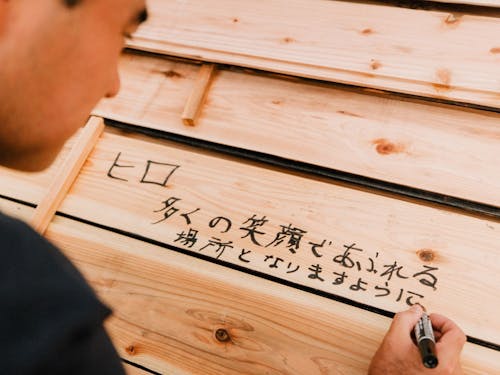 ヒロ
多くの笑顔であふれる
場所となりますように